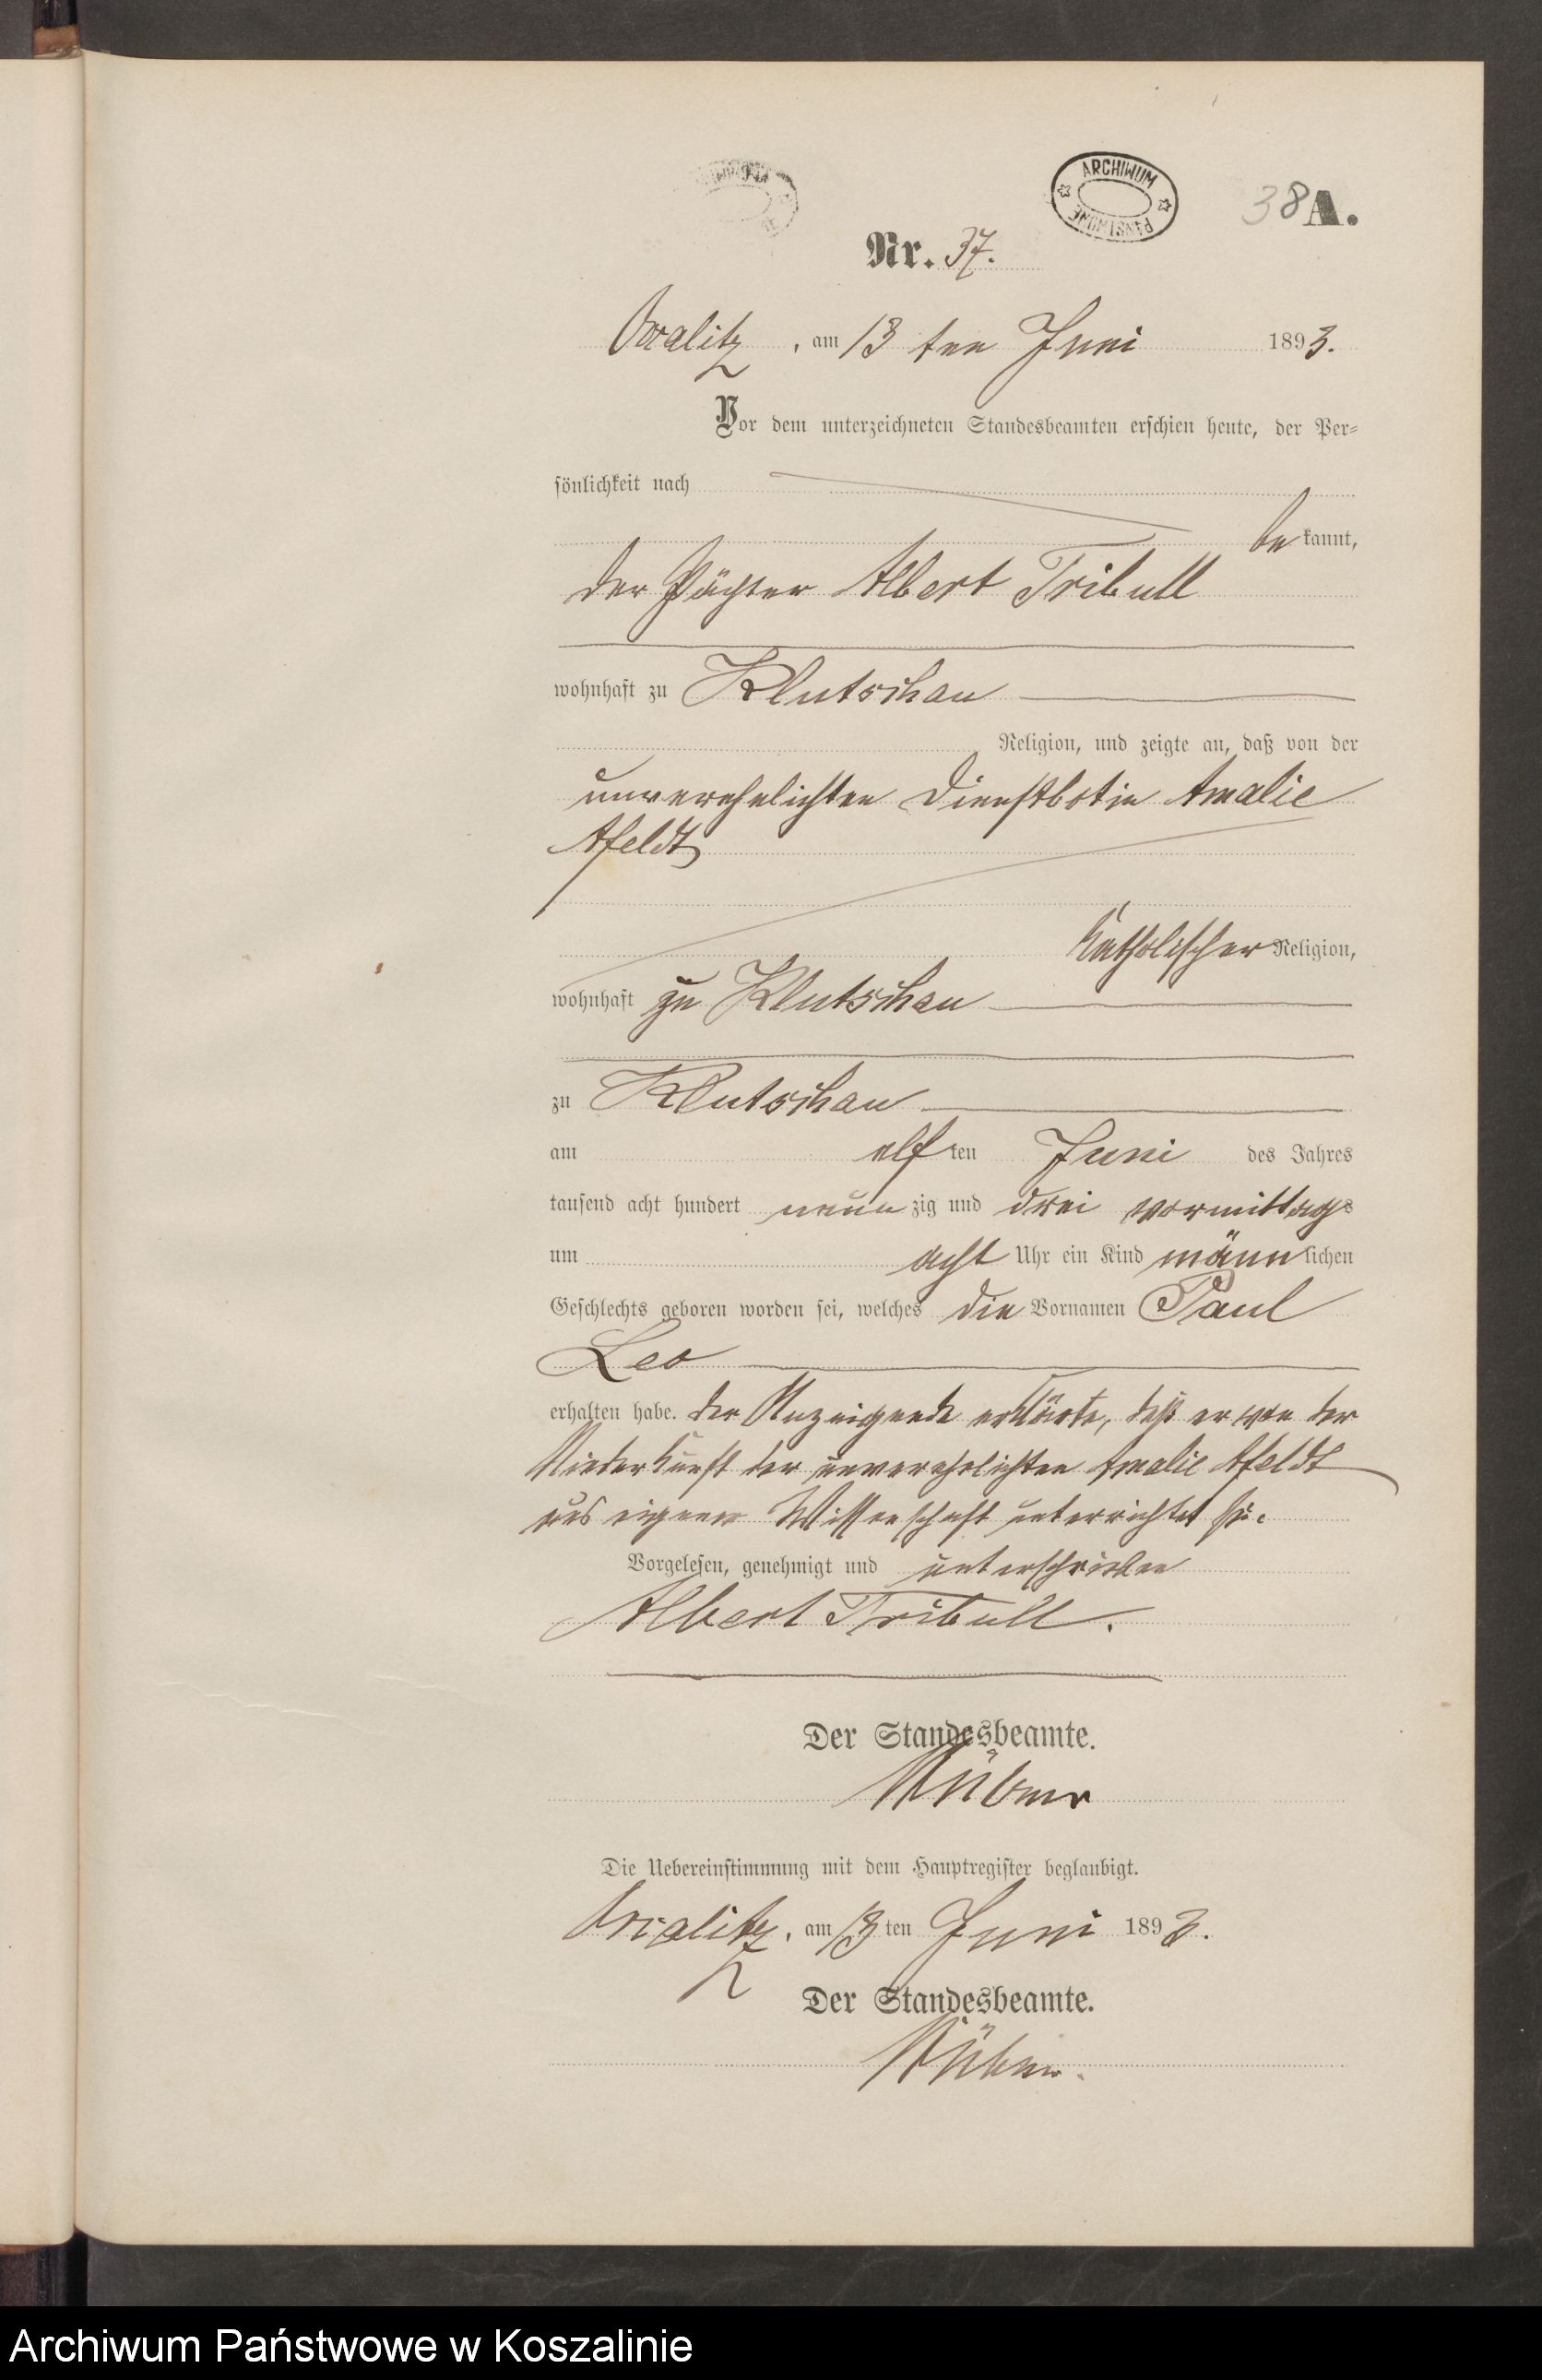 ARCHIWUM
PAŃSTWOWE
38 A.
Nr. 37.
am 13 ten Juni 1893.
Vor dem unterzeichneten Standesbeamten erschien heute, der Per-
sönlichkeit nach
bekannt,
der Pächter Albert Tribull
wohnhaft zu Klutschau
Religion, und zeigte an, daß von der
unverehelichten Dienstbotin Amalie
Afeldt
Katholischer Religion,
wohnhaft zu Klutschau
zu Klutschau
am elften Juni des Jahres
tausend acht hundert neunzig und drei vormittags
um acht Uhr ein Kind männlichen
Geschlechts geboren worden sei, welches die Vornamen Paul
Leo
erhalten habe. Der Anzeigende erklärte, daß er von der
Niederkunft der unverehelichten Amalie Afeldt
aus eigener Wissenschaft unterrichtet sei.
Vorgelesen, genehmigt und unterschrieben
Albert Tribull.
Der Standesbeamte.
Die Uebereinstimmung mit dem Hauptregister beglaubigt.
am 13 ten Juni 1893.
Der Standesbeamte.
Archiwum Państwowe w Koszalinie